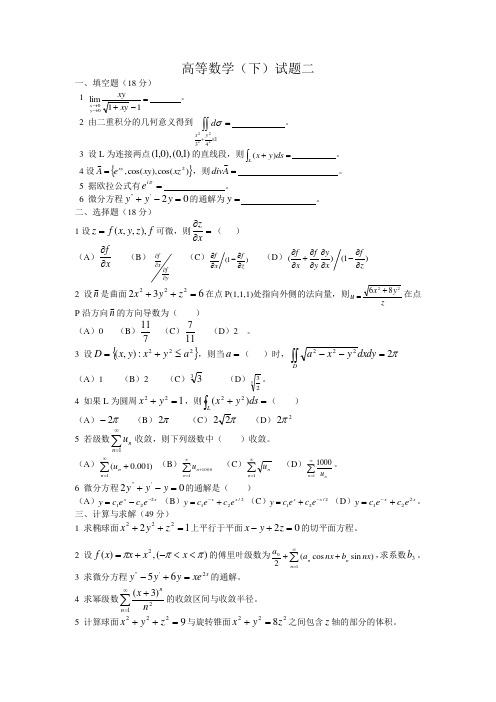 高等数学（下）试题二
一、填空题（18 分）
1 $\lim_{x\to 0, y\to 0}\frac{xy}{\sqrt{1+xy}-1}=$ 。
2 由二重积分的几何意义得到 $\iint_{\frac{x^2}{3^2}+\frac{y^2}{4^2}\le 1}d\sigma=$ 。
3 设 L 为连接两点(1,0),(0,1)的直线段，则$\int_L(x+y)ds=$ 。
4 设$\vec{A}=\{e^{xy},\cos(xy),\cos(xz^2)\}$，则$div\vec{A}=$ 。
5 据欧拉公式有$e^{i\pi}=$ 。
6 微分方程$y''+y'-2y=0$的通解为$y=$ 。
二、选择题（18 分）
1 设$z=f(x,y,z),f$可微，则$\frac{\partial z}{\partial x}=$（ ）
（A）$\frac{\partial f}{\partial x}$ （B）$\frac{\frac{\partial f}{\partial x}}{\frac{\partial f}{\partial y}}$ （C）$\frac{\partial f}{\partial x}(1-\frac{\partial f}{\partial z})$ （D）$(\frac{\partial f}{\partial x}+\frac{\partial f}{\partial y}\frac{\partial y}{\partial x})(1-\frac{\partial f}{\partial z})$
2 设$\vec{n}$是曲面$2x^2+3y^2+z^2=6$在点 P(1,1,1)处指向外侧的法向量，则$u=\frac{\sqrt{6x^2+8y^2}}{z}$在点
P 沿方向$\vec{n}$的方向导数为（ ）
（A）0 （B）$\frac{11}{7}$ （C）$\frac{7}{11}$ （D）2 。
3 设$D=\{(x,y):x^2+y^2\le a^2\}$，则当$a=$（ ）时，$\iint_D\sqrt{a^2-x^2-y^2}dxdy=2\pi$
（A）1 （B）2 （C）$\sqrt[3]{3}$ （D）$\sqrt[3]{\frac{3}{2}}$。
4 如果 L 为圆周$x^2+y^2=1$，则$\oint_L(x^2+y^2)ds=$（ ）
（A）$-2\pi$ （B）$2\pi$ （C）$2\sqrt{2}\pi$ （D）$2\pi^2$
5 若级数$\sum_{n=1}^{\infty}u_n$收敛，则下列级数中（ ）收敛。
（A）$\sum_{n=1}^{\infty}(u_n+0.001)$ （B）$\sum_{n=1}^{\infty}u_{n+1000}$ （C）$\sum_{n=1}^{\infty}\sqrt{u_n}$ （D）$\sum_{n=1}^{\infty}\frac{1000}{u_n}$。
6 微分方程$2y''+y'-y=0$的通解是（ ）
（A）$y=c_1e^x-c_2e^{-2x}$ （B）$y=c_1e^{-x}+c_2e^{x/2}$ （C）$y=c_1e^x+c_2e^{-x/2}$ （D）$y=c_1e^{-x}+c_2e^{2x}$。
三、计算与求解（49 分）
1 求椭球面$x^2+2y^2+z^2=1$上平行于平面$x-y+2z=0$的切平面方程。
2 设$f(x)=\pi x+x^2,(-\pi<x<\pi)$的傅里叶级数为$\frac{a_0}{2}+\sum_{n=1}^{\infty}(a_n\cos nx+b_n\sin nx)$，求系数$b_3$。
3 求微分方程$y''-5y'+6y=xe^{2x}$的通解。
4 求幂级数$\sum_{n=1}^{\infty}\frac{(x+3)^n}{n^2}$的收敛区间与收敛半径。
5 计算球面$x^2+y^2+z^2=9$与旋转锥面$x^2+y^2=8z^2$之间包含$z$轴的部分的体积。